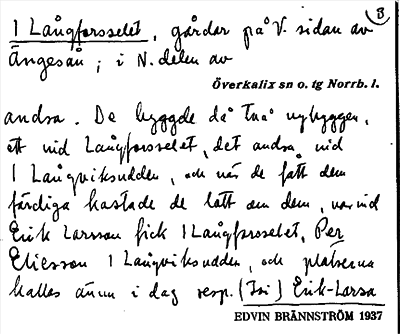 1 Långforsselet, gårdar på V. sidan av
Ängesån; i N. delen av
Överkalix sn o. tg Norrb. l.
andra. De byggde då två nybyggen,
ett vid Långforsselet, det andra vid
1 Långviksudden, och när de fått dem
färdiga kastade de lott om dem, varvid
Erik Larsson fick 1 Långforsselet, Per
Eliesson 1 Långviksudden, och platserna
kallas ännu i dag resp. (Isi) Erik-Larsa
EDVIN BRÄNNSTRÖM 1937